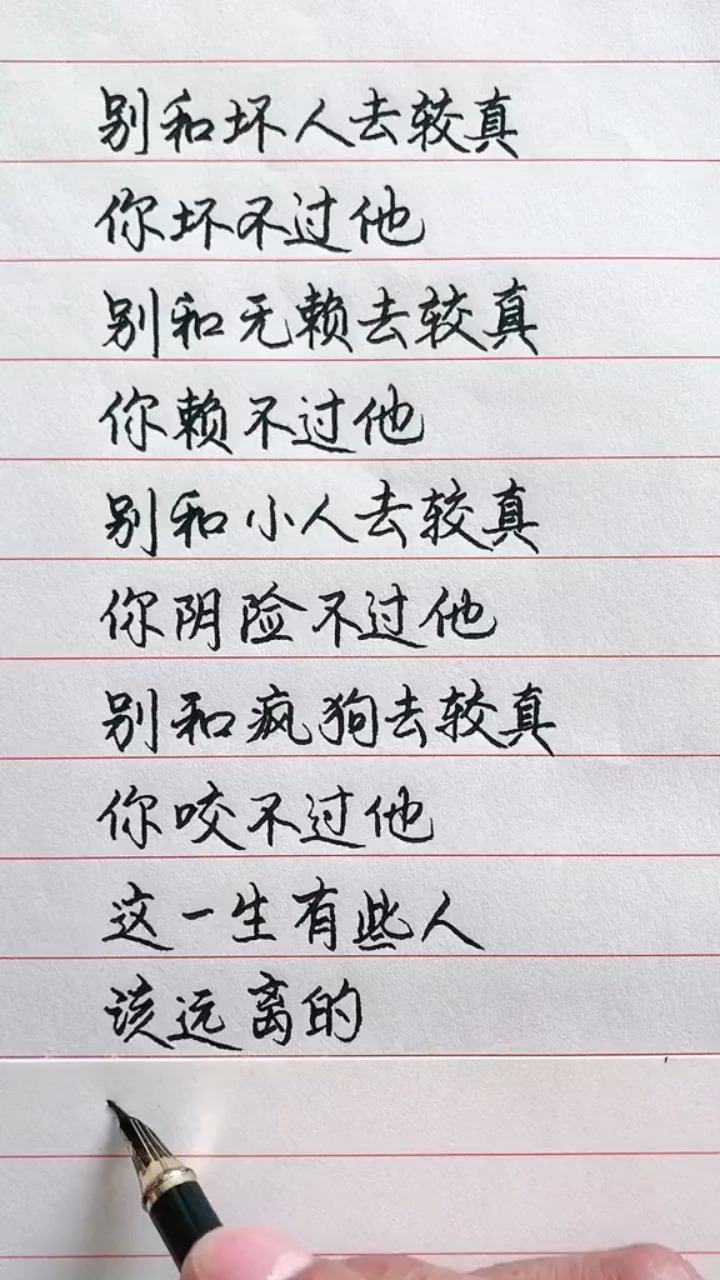 别和坏人去较真
你坏不过他
别和无赖去较真
你赖不过他
别和小人去较真
你阴险不过他
别和疯狗去较真
你咬不过他
这一生有些人
该远离的